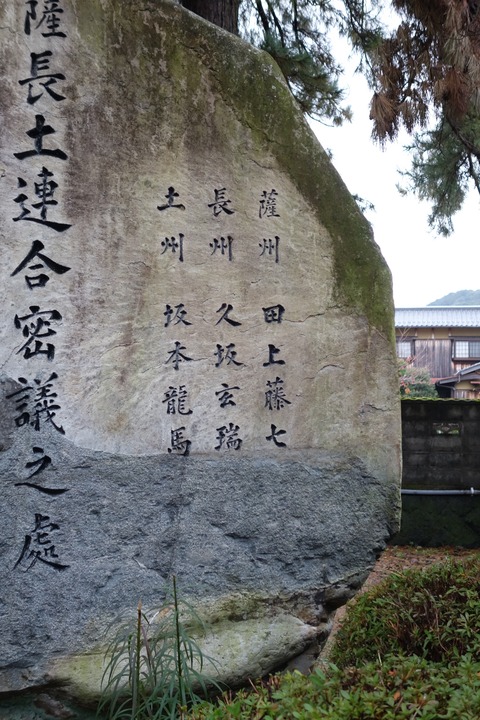 薩州 田上藤七
長州 久坂玄瑞
土州 坂本龍馬
薩長土連合密議之處